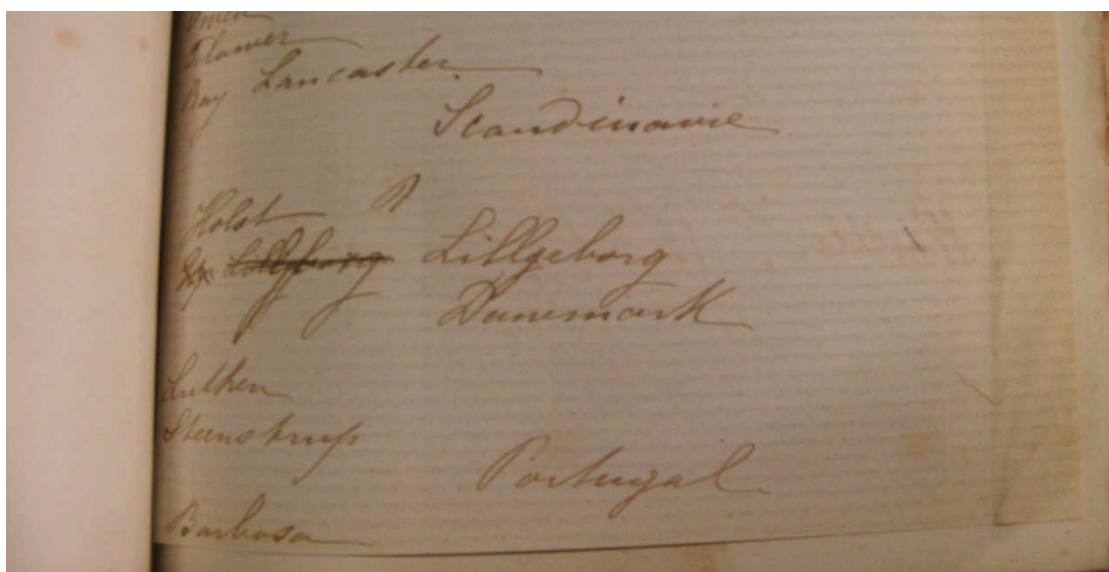 Owen
Flower
Ray Lancaster
Scandinavie
Holst
Lillgeborg Lillgeborg
Danemark
Lutken
Steenstrup
Portugal
Barbosa